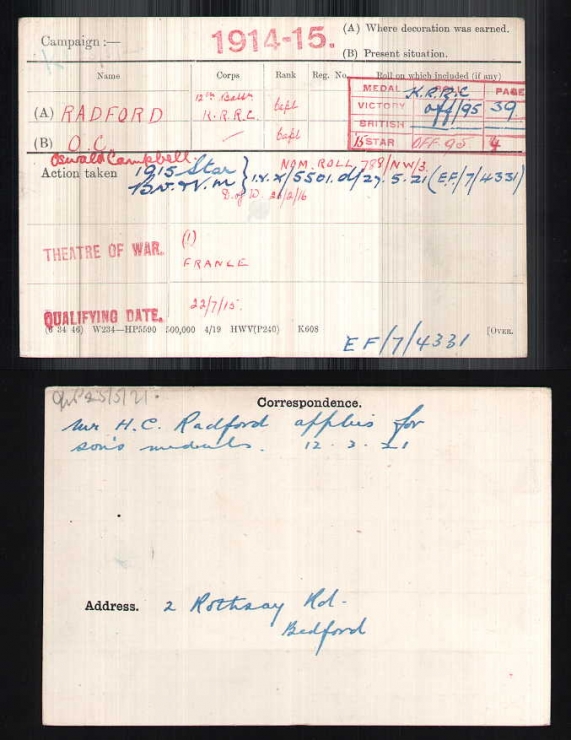 Campaign :— 1914-15. (A) Where decoration was earned.
(B) Present situation.
Name Corps Rank Reg. No. Roll on which included (if any)
MEDAL ROLL PAGE
K.R.R.C
VICTORY off/95 39
BRITISH
15 STAR OFF. 95 4
(A) RADFORD 12th Battn K.R.R.C. Capt
(B) O.C. — Capt
Oswald Campbell
Action taken 1915 Star NOM. ROLL 788/NW/3.
B.V.W.M } I.V.X/5501.d/27.5.21 (EF/7/4331)
D. of W. 26/2/16
THEATRE OF WAR. (1)
FRANCE
QUALIFYING DATE. 22/7/15.
(6 34 46) W234—HP5590 500,000 4/19 HWV(P240) K608 [OVER.
EF/7/4331
Correspondence.
Mr H.C. Radford applies for
son's medals. 12.3.21
Address. 2 Rothsay Rd.
Bedford